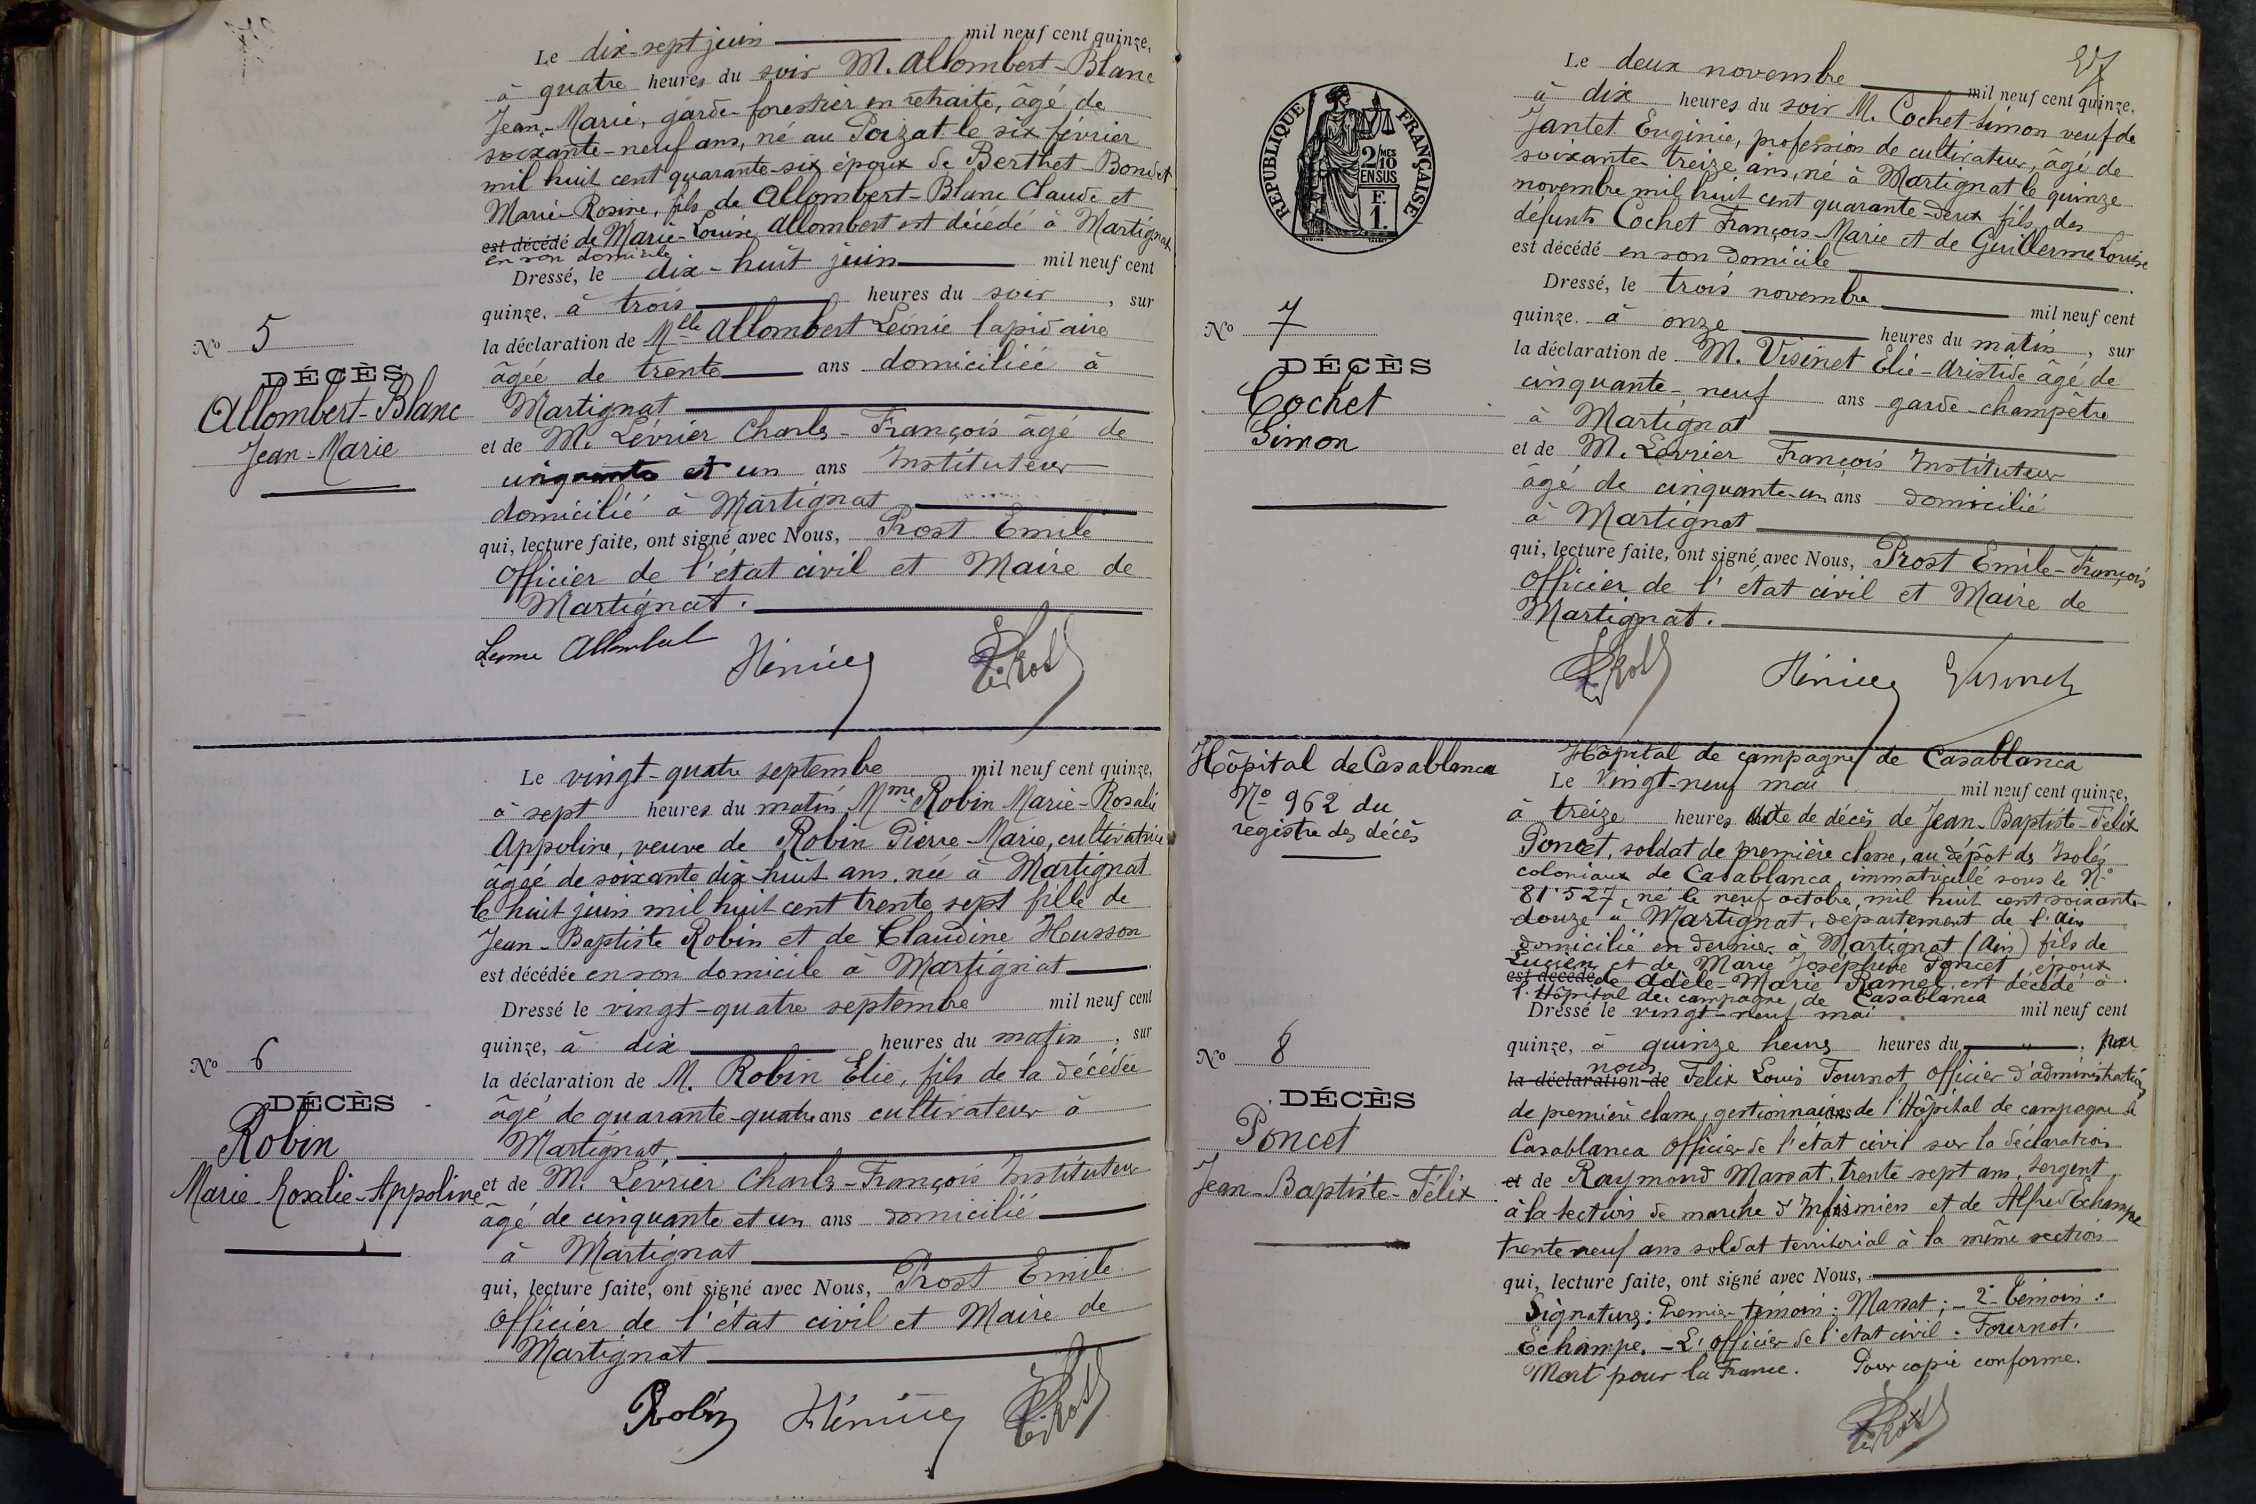 Le dix-sept juin mil neuf cent quinze,
à quatre heures du soir M. Allombert-Blanc
Jean-Marie, garde-forestier en retraite, âgé de
soixante-neuf ans, né au Poizat le six février
mil huit cent quarante-six époux de Berthet-Bondet
Marie-Rosine, fils de Allombert-Blanc Claude et
est décédé de Marie-Louise Allombert est décédé à Martignat
en son domicile
Dressé, le dix-huit juin mil neuf cent
quinze. à trois heures du soir, sur
la déclaration de Mlle Allombert Léonie lapidaire
âgée de trente ans domiciliée à
Martignat
et de M. Lévrier Charles-François âgé de
cinquante et un ans Instituteur
domicilié à Martignat
qui, lecture faite, ont signé avec Nous, Prost Emile
Officier de l'état civil et Maire de
Martignat.
No 5
DÉCÈS
Allombert-Blanc
Jean-Marie
Le vingt-quatre septembre mil neuf cent quinze,
à sept heures du matin Mme Robin Marie-Rosalie
Appoline, veuve de Robin Pierre-Marie, cultivatrice
âgée de soixante dix-huit ans, née à Martignat
le huit juin mil huit cent trente sept fille de
Jean-Baptiste Robin et de Claudine Husson
est décédée en son domicile à Martignat
Dressé le vingt-quatre septembre mil neuf cent
quinze, à dix heures du matin, sur
la déclaration de M. Robin Elie, fils de la décédée
âgé de quarante-quatre ans cultivateur à
Martignat
et de M. Lévrier Charles-François Instituteur
âgé de cinquante et un ans domicilié
à Martignat
qui, lecture faite, ont signé avec Nous, Prost Emile
Officier de l'état civil et Maire de
Martignat
Robin
No 6
DÉCÈS
Robin
Marie-Rosalie-Appoline
27
RÉPUBLIQUE FRANÇAISE
2/MES
10
EN SUS
F.
1.
Le deux novembre mil neuf cent quinze,
à dix heures du soir M. Cochet Simon veuf de
Jantet Euginie, profession de cultivateur, âgé de
soixante-treize ans, né à Martignat le quinze
novembre mil huit cent quarante-deux fils des
défunts Cochet François-Marie et de Guillerme Louise
est décédé en son domicile
Dressé, le trois novembre mil neuf cent
quinze. à onze heures du matin, sur
la déclaration de M. Visinet Elie-Aristide âgé de
cinquante-neuf ans garde-champêtre
à Martignat
et de M. Levrier François Instituteur
âgé de cinquante-un ans domicilié
à Martignat
qui, lecture faite, ont signé avec Nous, Prost Emile-François
Officier de l'état civil et Maire de
Martignat.
No 7
DÉCÈS
Cochet
Simon
Hôpital de Casablanca
No 962 du
registre des décès
Hôpital de campagne de Casablanca
Le Vingt-neuf mai mil neuf cent quinze,
à treize heures Acte de décès de Jean-Baptiste-Felix
Poncet, soldat de première classe, au dépôt des Isolés
coloniaux de Casablanca, immatriculé sous le No
81527, né le neuf octobre, mil huit cent soixante-
douze à Martignat, département de l'Ain
domicilié en dernier à Martignat (Ain) fils de
Lucien et de Marie Joséphine Poncet, époux
est décédé de Adèle-Marie Ramel, est décédé à
l'Hôpital de campagne de Casablanca
Dressé le vingt-neuf mai mil neuf cent
quinze, à quinze heures heures du " , par
nous
la déclaration de Félix Louis Fournot Officier d'administration
de première classe, gestionnaire de l'Hôpital de campagne de
Casablanca Officier de l'état civil sur la déclaration
et de Raymond Massat, trente sept ans, sergent
à la section de marche d'Infirmiers et de Alfred Echampe
trente neuf ans soldat territorial à la même section
qui, lecture faite, ont signé avec Nous,
Signatures: Premier témoin: Massat; - 2e Témoin:
Echampe. - L'officier de l'état civil: Fournot.
Mort pour la France. Pour copie conforme.
No 8
DÉCÈS
Poncet
Jean-Baptiste-Félix